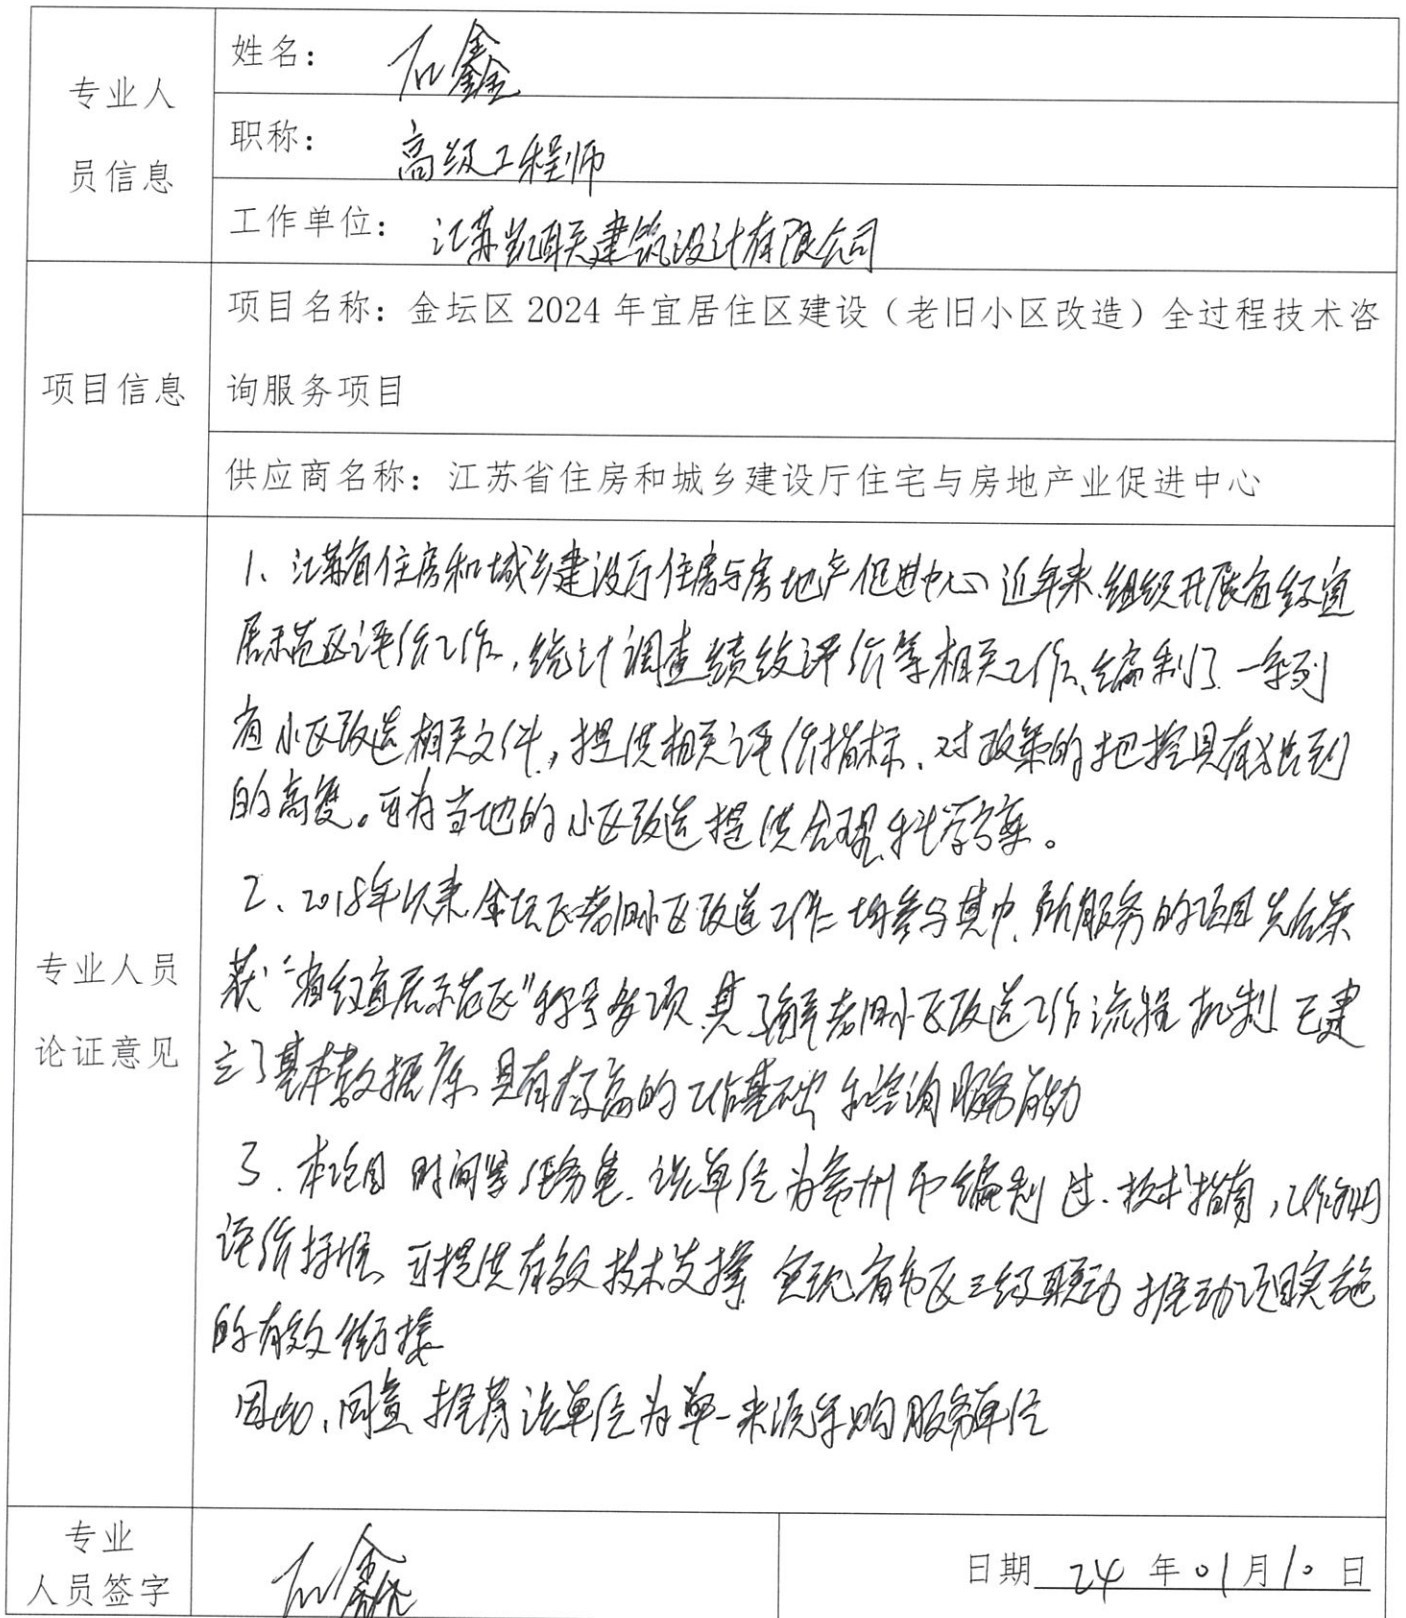 专业人
员信息
姓名： 石鑫
职称： 高级工程师
工作单位： 江苏凯联建筑设计有限公司
项目信息
项目名称：金坛区 2024 年宜居住区建设（老旧小区改造）全过程技术咨
询服务项目
供应商名称：江苏省住房和城乡建设厅住宅与房地产业促进中心
专业人员
论证意见
1、江苏省住房和城乡建设厅住房与房地产促进中心近年来,组织开展省级宜
居示范区评价工作，统计调查绩效评价等相关工作、编制了一系列
省小区改造相关文件，提供相关评价指标、对政策的把控具有独到
的高度。可为当地的小区改造提供合理、科学方案。
2、2018年以来金坛区老旧小区改造工作均参与其中,所服务的项目先后荣
获“省级宜居示范区”称号多项,其了解老旧小区改造工作流程机制 已建
立了基本数据库、具有较高的工作基础和咨询服务能力
3.本项目时间紧任务重.该单位为常州市编制过.技术指南，工作
评价标准、可提供有效技术支撑 实现省市区三级联动 推动项目实施
的有效衔接
因此,同意推荐该单位为单一来源采购服务单位
专业
人员签字
石鑫
日期 24 年 01 月 10 日